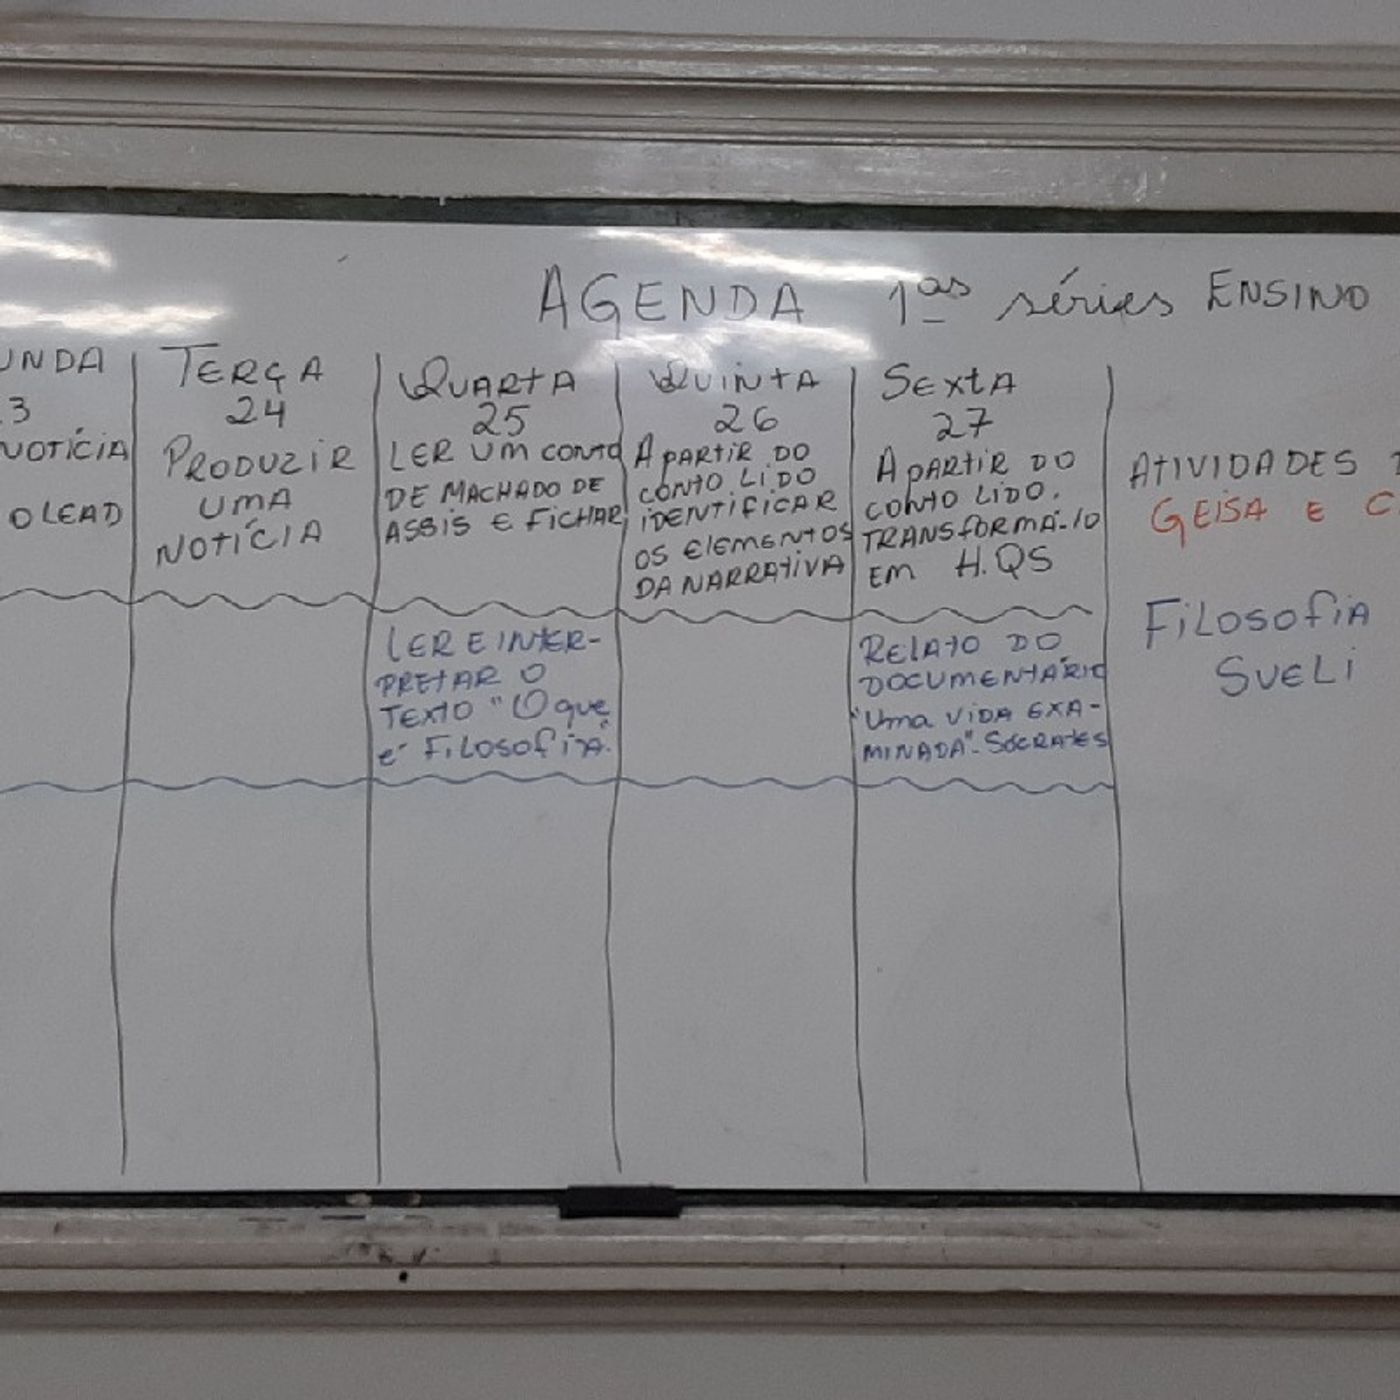 AGENDA 1as séries ENSINO
UNDA
3
NOTÍCIA
O LEAD
TERÇA
24
PRODUZIR
UMA
NOTÍCIA
QUARTA
25
LER UM CONTO
DE MACHADO DE
ASSIS E FICHAR
QUINTA
26
A PARTIR DO
CONTO LIDO
IDENTIFICAR
OS ELEMENTOS
DA NARRATIVA
SEXTA
27
A PARTIR DO
CONTO LIDO.
TRANSFORMÁ-lO
EM H.QS
LER E INTER-
PRETAR O
TEXTO "O que
é FILOSOFIA".
RELATO DO
DOCUMENTÁRIO
"Uma VIDA EXA-
MINADA"- SÓCRATES
ATIVIDADES
GEISA E C
FILOSOFIA
SUELI